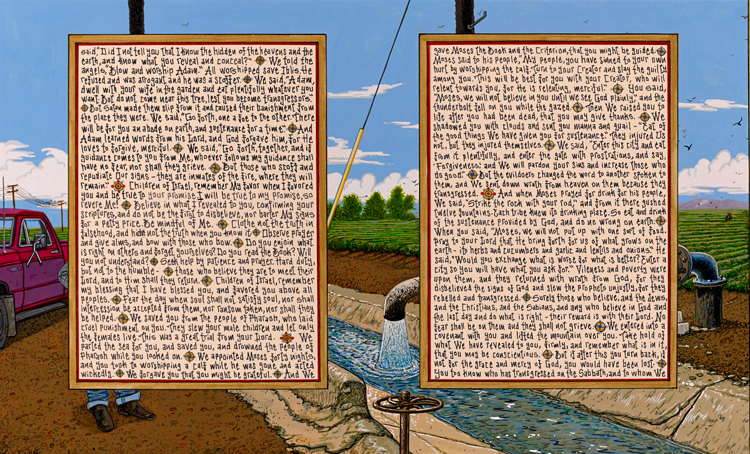 said, "Did I not tell you that I know the hidden of the heavens and the
earth, and know what you reveal and conceal?" We told the
angels, "Bow and worship Adam." All worshipped save Iblis. He
refused and was arrogant, and he was a scoffer. We said, "Adam,
dwell with your wife in the garden and eat plentifully whatever you
want. But do not come near this tree, lest you become transgressors."
But Satan made them slip from it and caused their banishment from
the place they were. We said, "Go forth, one a foe to the other. There
will be for you an abode on earth, and sustenance for a time." And
Adam learned words from his Lord, and God forgave him, for He
loves to forgive, merciful. We said, "Go forth, together, and if
guidance comes to you from Me, whoever follows my guidance shall
have no fear, nor shall they grieve. But those who scoff and
repudiate Our signs – they are inmates of the fire, where they will
remain." Children of Israel, remember My favor when I favored
you and be true to your promise. I will be true to my promise, so
revere Me! Believe in what I revealed to you, confirming your
scriptures, and do not be the first to disbelieve, nor barter My signs
for a petty price. Be mindful of Me. Clothe not the truth in
falsehood, and hide not the truth when you know it. Observe prayer
and give alms, and bow with those who bow. Do you enjoin what
is right on others and forget yourselves? Do you read the Book? Will
you not understand? Seek help by patience and prayer: hard duty,
but not to the humble – those who believe they are to meet their
Lord, and to Him shall they return. Children of Israel, remember
my blessing that I have blessed you, and favored you above all
peoples. Fear the day when soul shall not satisfy soul, nor shall
intercession be accepted from them, nor ransom taken, nor shall they
be helped. We saved you from the people of Pharaoh, who laid
cruel punishment on you. They slew your male children and let only
the females live. This was a great trial from your Lord. We
parted the sea for you, and saved you, and drowned the people of
Pharaoh while you looked on. We appointed Moses forty nights,
and you took to worshipping a calf while he was gone and acted
wickedly. We forgave you that you might be grateful. And We
gave Moses the Book and the Criterion, that you might be guided.
Moses said to his people, "My people, you have sinned to your own
hurt by worshipping the calf. Turn to your Creator and slay the guilty
among you. This will be best for you with your Creator, who will
relent towards you, for He is relenting, merciful." You said,
"Moses, we will not believe in you until we see God plainly," and the
thunderbolt fell on you while you gazed. Then We raised you to
life after you had been dead, that you may give thanks. We
shadowed you with clouds and sent you manna and quail – "Eat of
the good things We have given you for sustenance." They injured Us
not, but they injured themselves. We said, "Enter this city and eat
from it plentifully, and enter the gate with prostrations, and say,
'Forgiveness,' and We will pardon your sins and increase those who
do good." But the evildoers changed the word to another spoken to
them, and We sent down wrath from heaven on them because they
transgressed. And when Moses prayed for drink for his people,
We said, "Strike the rock with your rod," and from it there gushed
twelve fountains. Each tribe knew its drinking place. So eat and drink
of the sustenance provided by God, and do no wrong on earth.
When you said, "Moses, we will not put up with one sort of food.
Pray to your Lord that He bring forth for us of what grows on the
earth – its herbs and cucumbers and garlic and lentils and onions." He
said, "Would you exchange what is worse for what is better? Enter a
city so you will have what you ask for." Vileness and poverty were
upon them, and they returned with wrath from God, for they
disbelieved the signs of God and slew the Prophets unjustly, for they
rebelled and transgressed. Surely those who believe, and the Jews,
and the Christians, and the Sabians, and any who believe in God and
the last day and do what is right – their reward is with their Lord. No
fear shall be on them and they shall not grieve. We entered into a
covenant with you and lifted the mountain over you. "Take hold of
what We have revealed to you, firmly, and remember what is in it,
that you may be conscientious. But if after this you turn back, if
not for the grace and mercy of God, you would have been lost.
You too know who has transgressed on the Sabbath, and to whom We